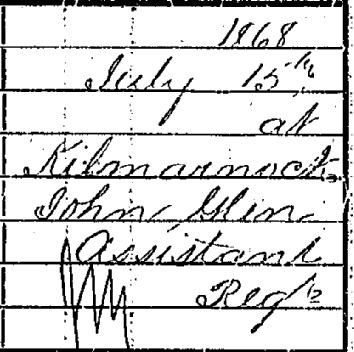 1868
July 15th
at
Kilmarnock
John Glen
Assistant
Regr